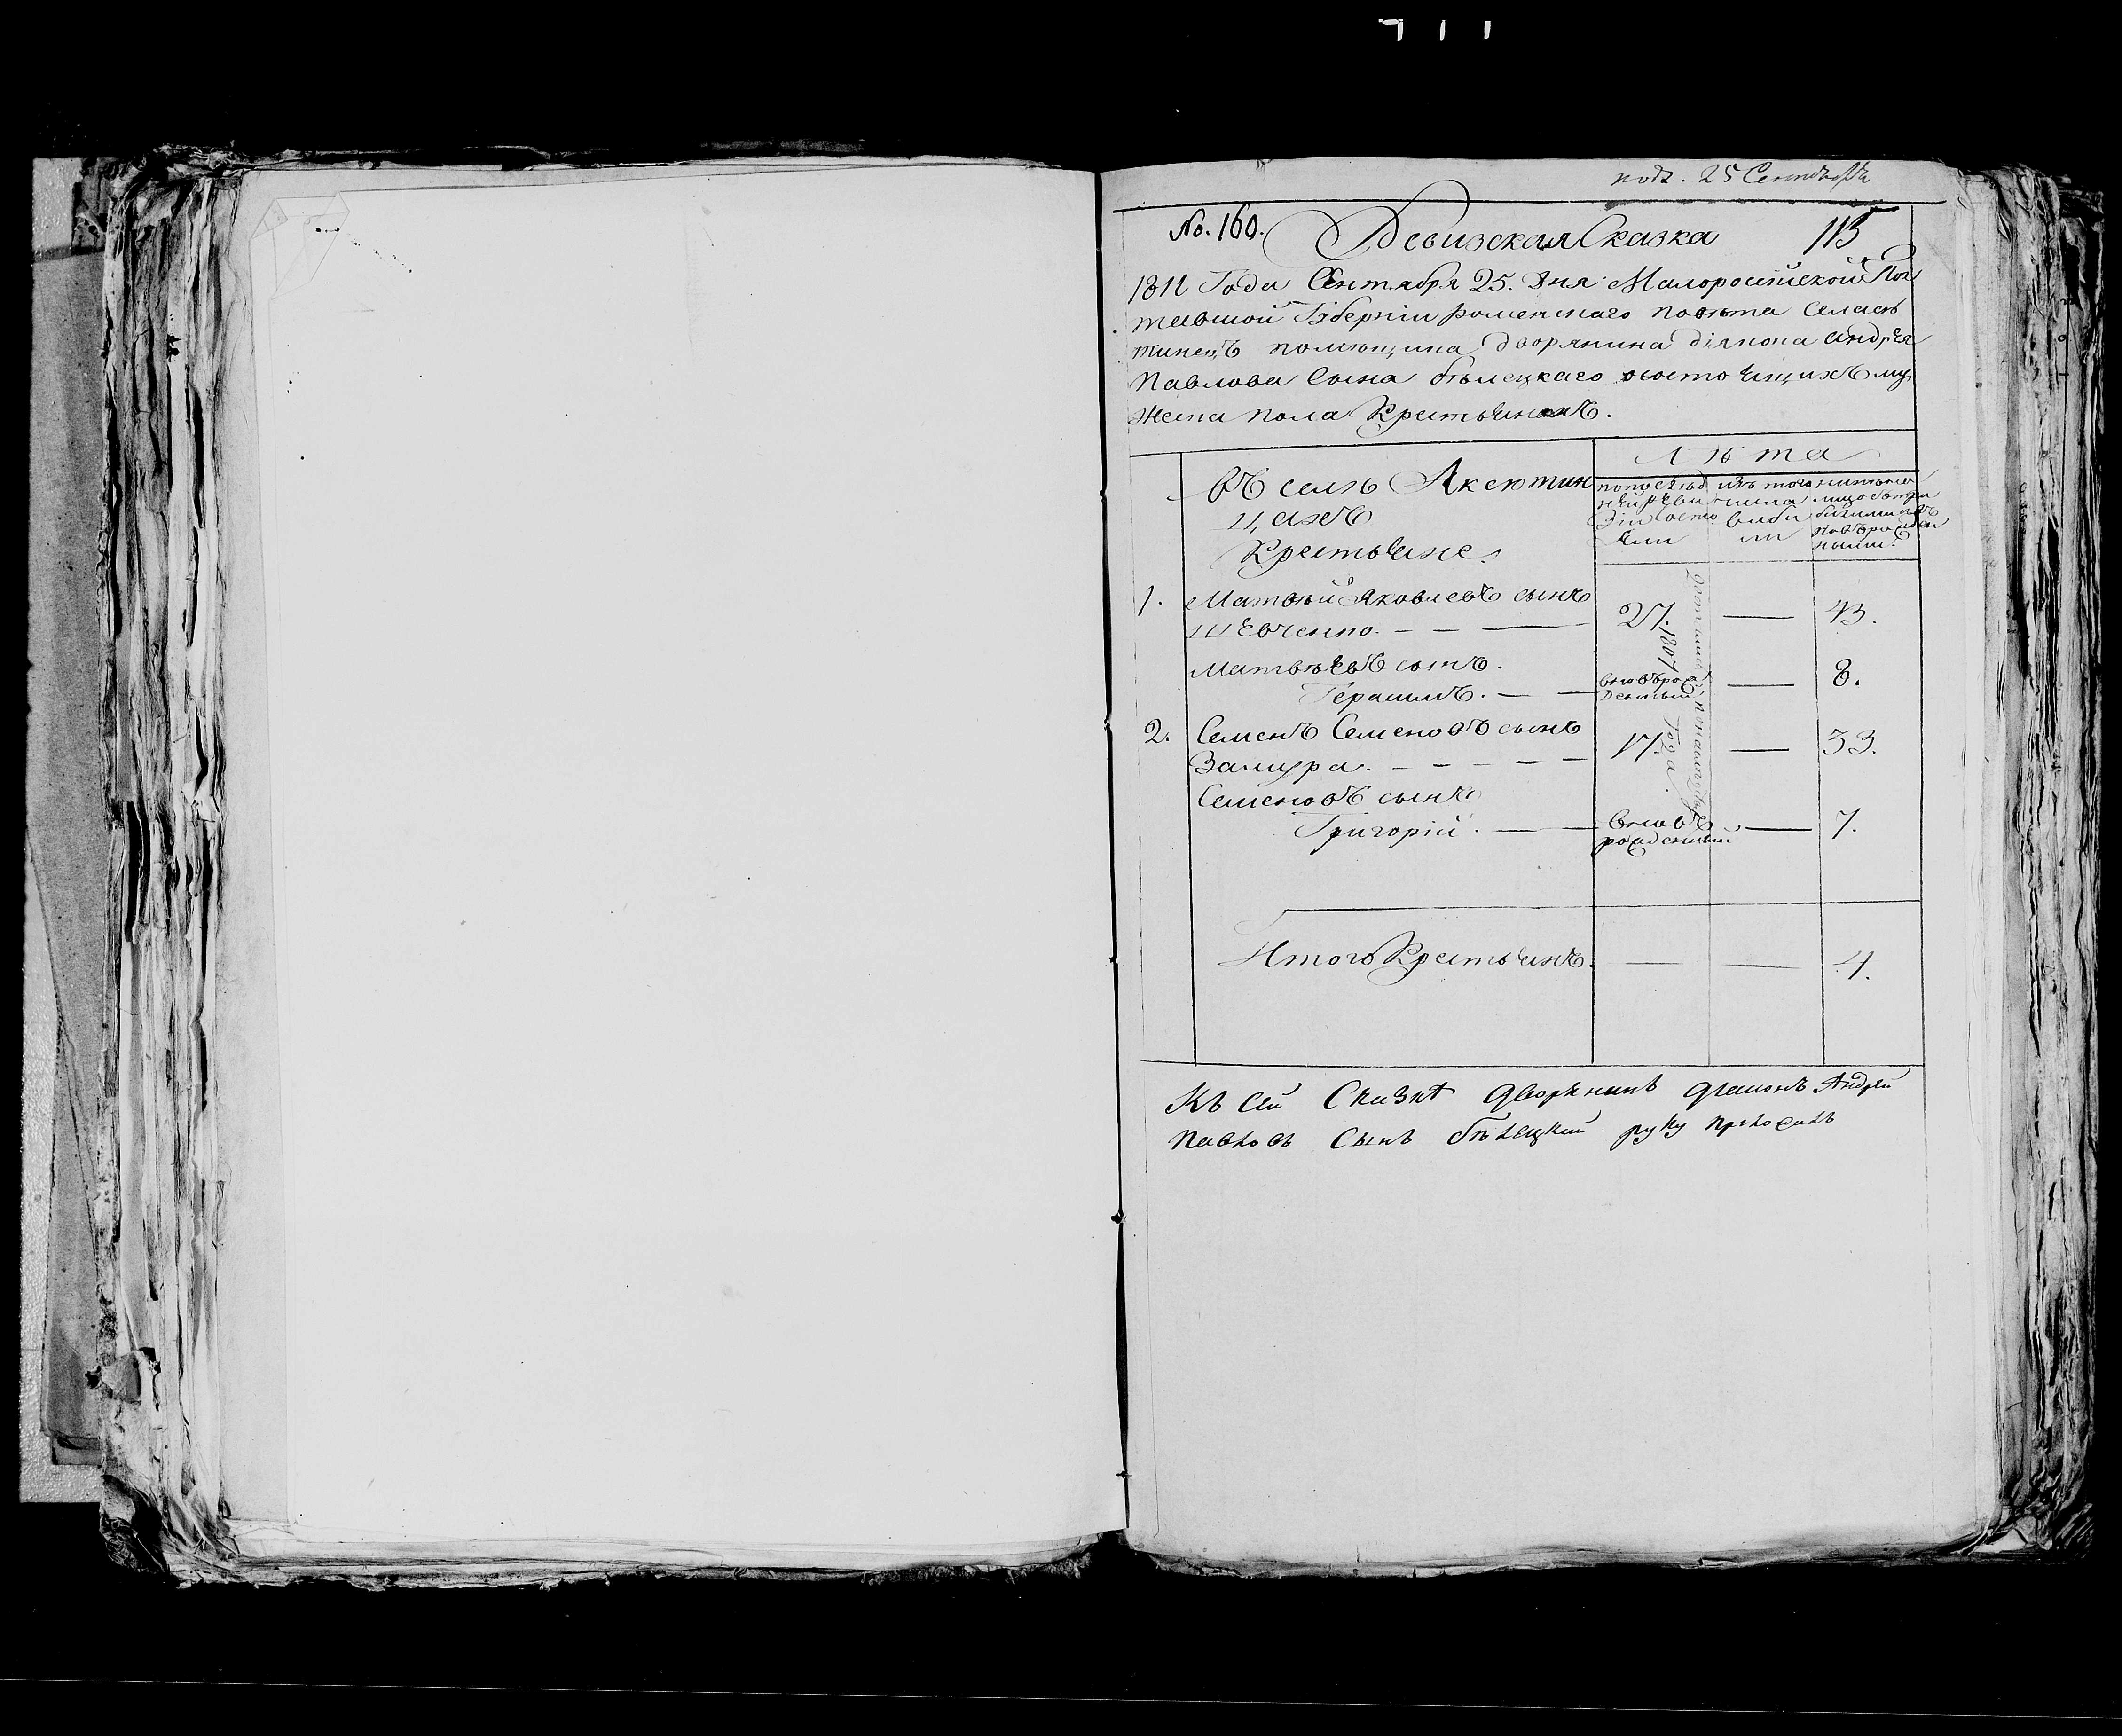 711
под. 25 Сентября
No. 160. Ревизская Сказка 115
1811 Года Сентября 25. Дня Малоросійской Пол
тавской Губерніи роменскаго повѣта Села
помѣщика дворянина діякона андрея
Павлова Сына бѣлецкаго состоящихъ му
жеска пола Крестьянахъ.
Лѣта
Въ селѣ Аксютин
цахъ
Крестьяне.
по послѣд
ней реви
зіи состо
яли
изъ того
числа
выбы
ли
ныне на
лицо
ными.
1. Матвѣй Яковлевъ сынъ
шевченко. 27. — 43.
Матвѣевъ сынъ.
Герасимъ. — вновьрож
денный — 8.
2. Семенъ Семеновъ сынъ
Замура. 17. — 33.
Семеновъ сынъ
Григорій. — вновь
рожденный — 7.
1807 Года.
Итого Крестьянъ. — — 4.
Къ сей Сказкѣ дворянинъ діаконъ Андрей
Павловъ Сынъ бѣлецкий руку приложилъ